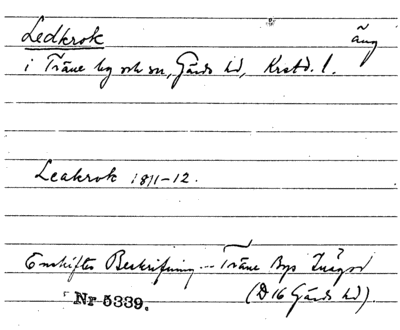 Ledkrok äng
i Träne by och sn, Gärds hd, Krstd. l.
Leakrok 1811-12.
Enskiftes Beskrifning - Träne Bys Inägor
Nr 5339. (D 16 Gärds hd).